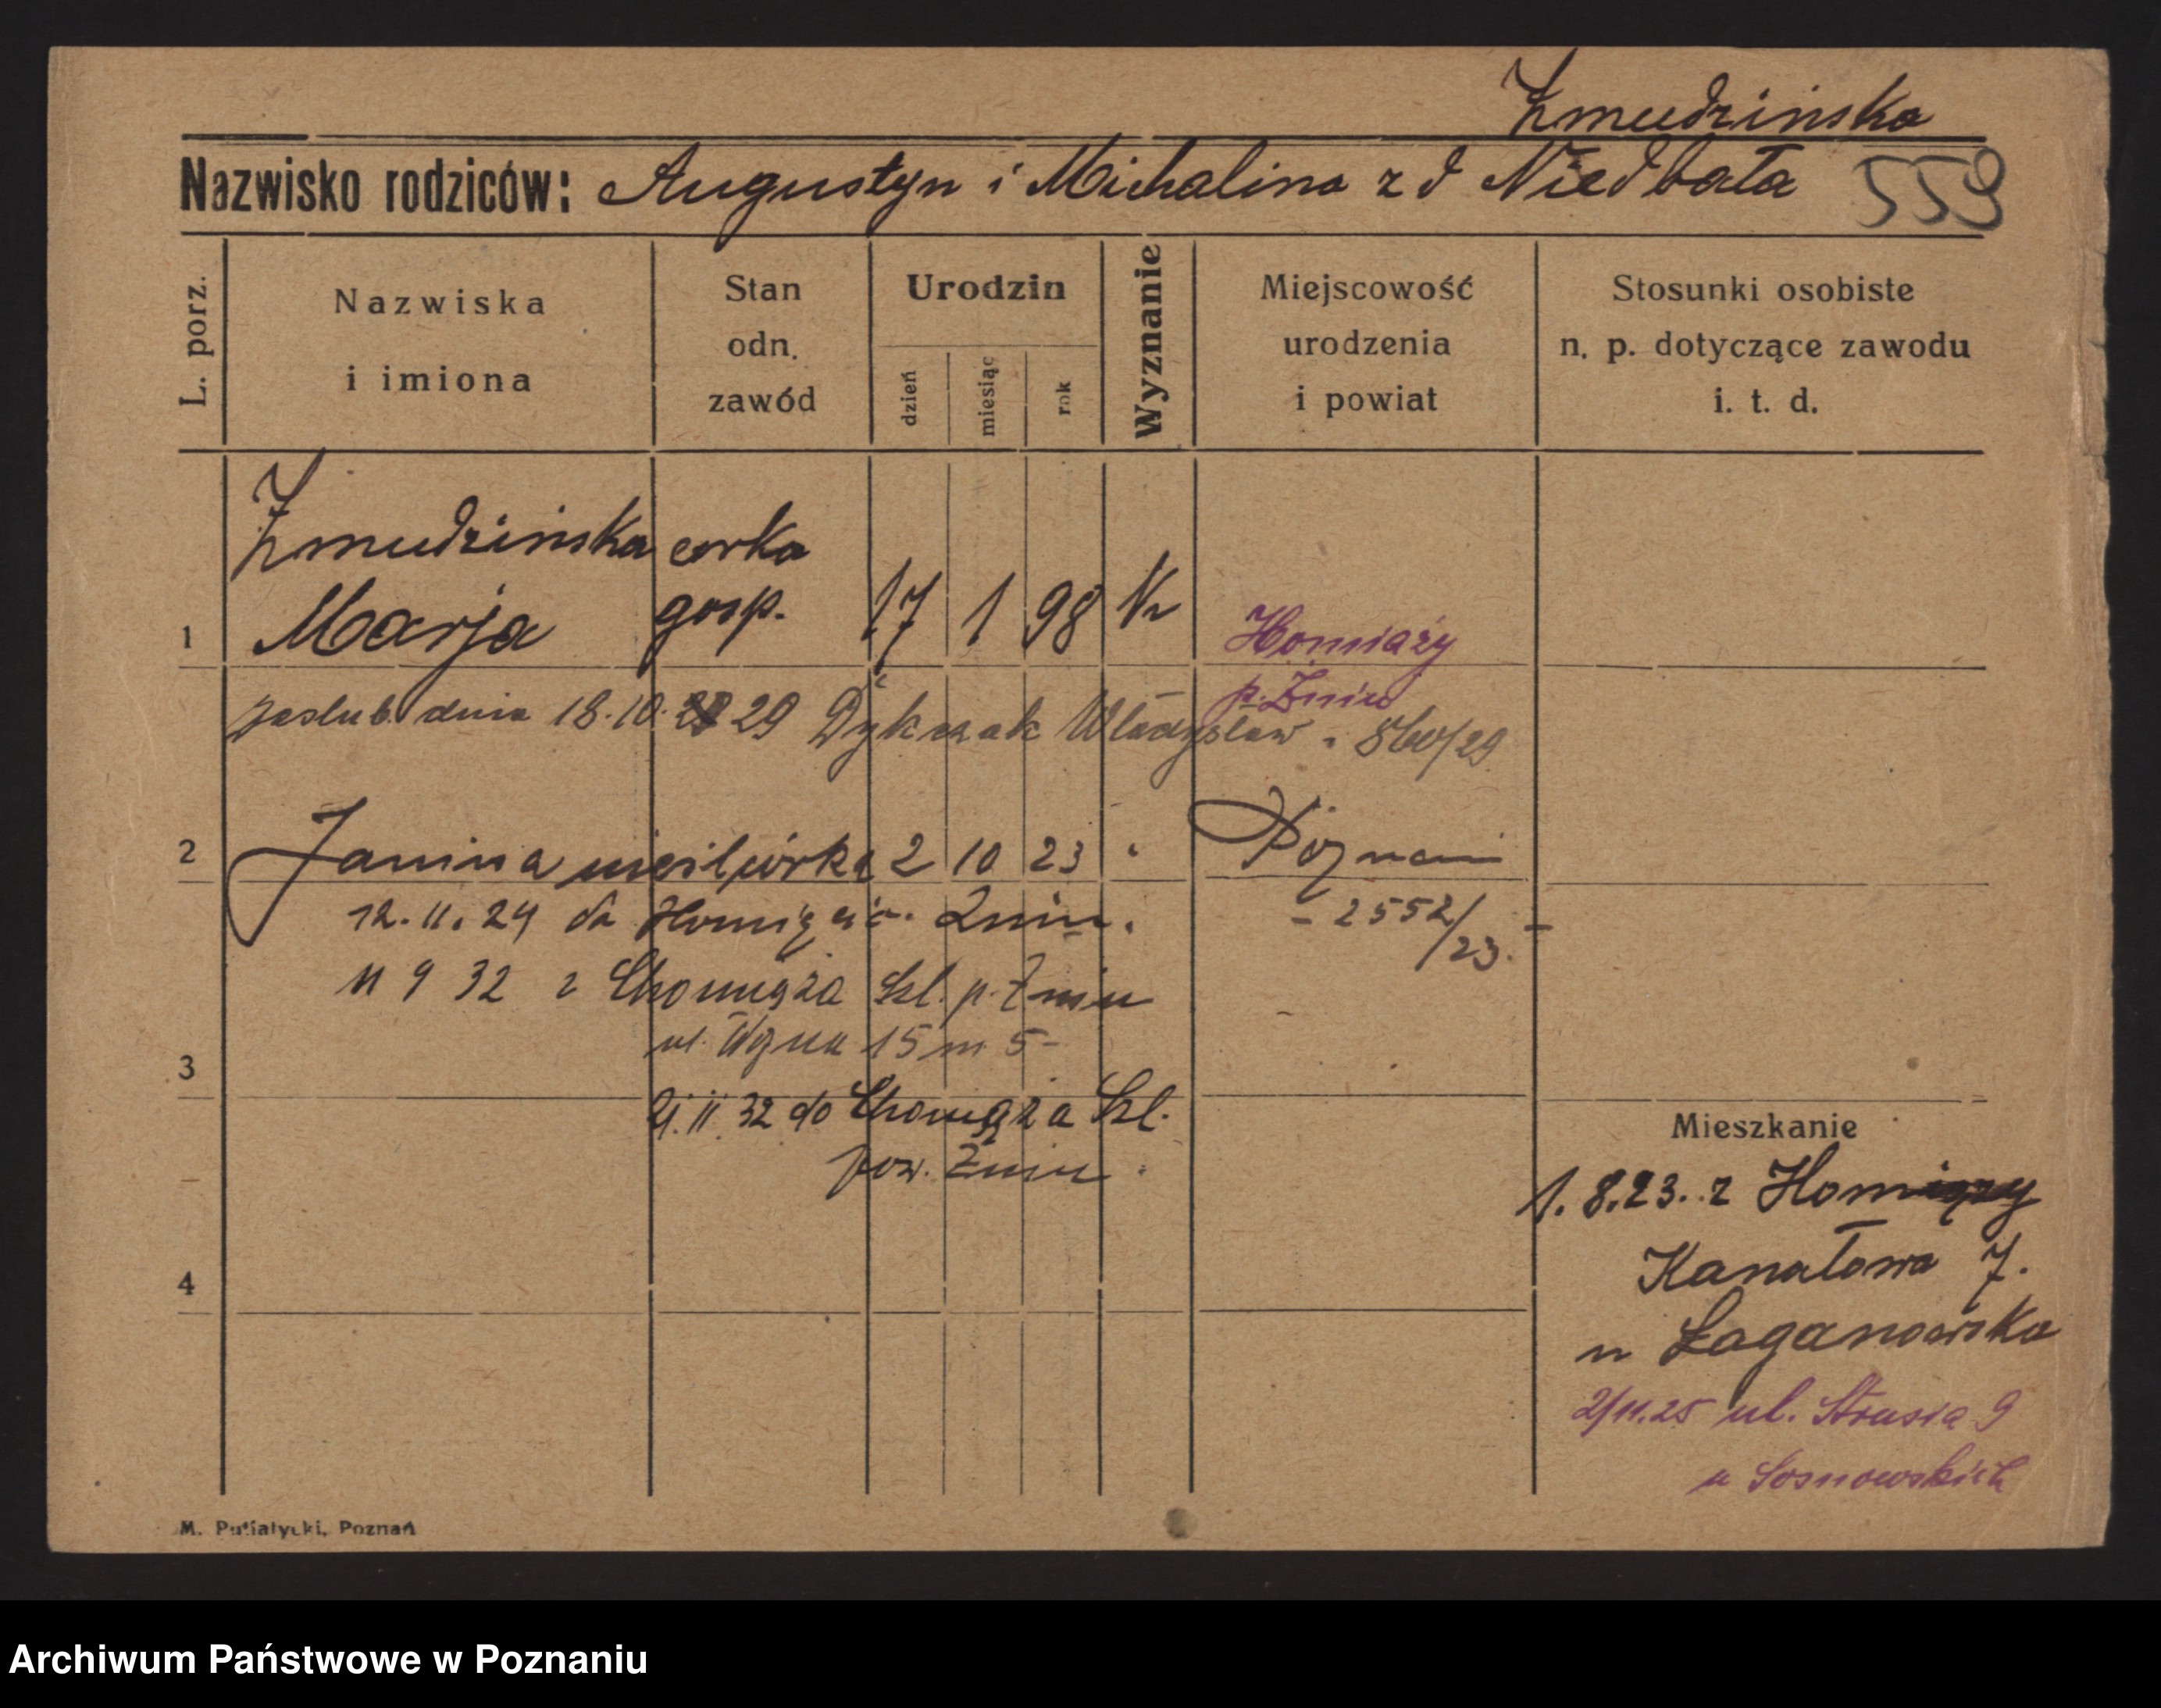 Żmudzińska
Nazwisko rodziców: Augustyn i Michalina z d Niedbała 559
L. porz.
Nazwiska
i imiona
Stan
odn.
zawód
Urodzin
dzień
miesiąc
rok
Wyznanie
Miejscowość
urodzenia
i powiat
Stosunki osobiste
n. p. dotyczące zawodu
i. t. d.
1
Żmudzińska
Marja
corka
gosp.
17 1 98
Homiąży
p. Żnin
zaslub. dnia 18.10. 29 Władysław 860/29
2
Janina 2 10 23 "
Poznań
- 2552/23. -
12.11.24 do Żnin.
11 9 32 z Chomiąża Szl. p. Żnin
15 m 5
3
21.11.32 do Chomiąża Szl.
pow. Żnin.
4
Mieszkanie
1.8.23. z Homiąży
Kanałowa 7.
u Łaganowska
2/11.25 ul. Strusia 9
u Sosnowskich
M. Putiatycki, Poznań
Archiwum Państwowe w Poznaniu